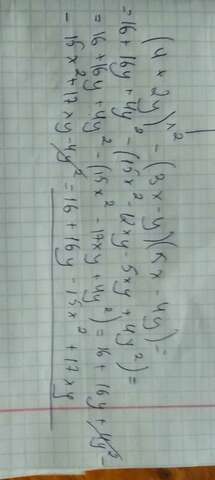 (4 + 2y)² - (3x - y)(5x - 4y) =
= 16 + 16y + 4y² - (15x² - 12xy - 5xy + 4y²) =
= 16 + 16y + 4y² - (15x² - 17xy + 4y²) = 16 + 16y + 4y² -
- 15x² + 17xy - 4y² = 16 + 16y - 15x² + 17xy